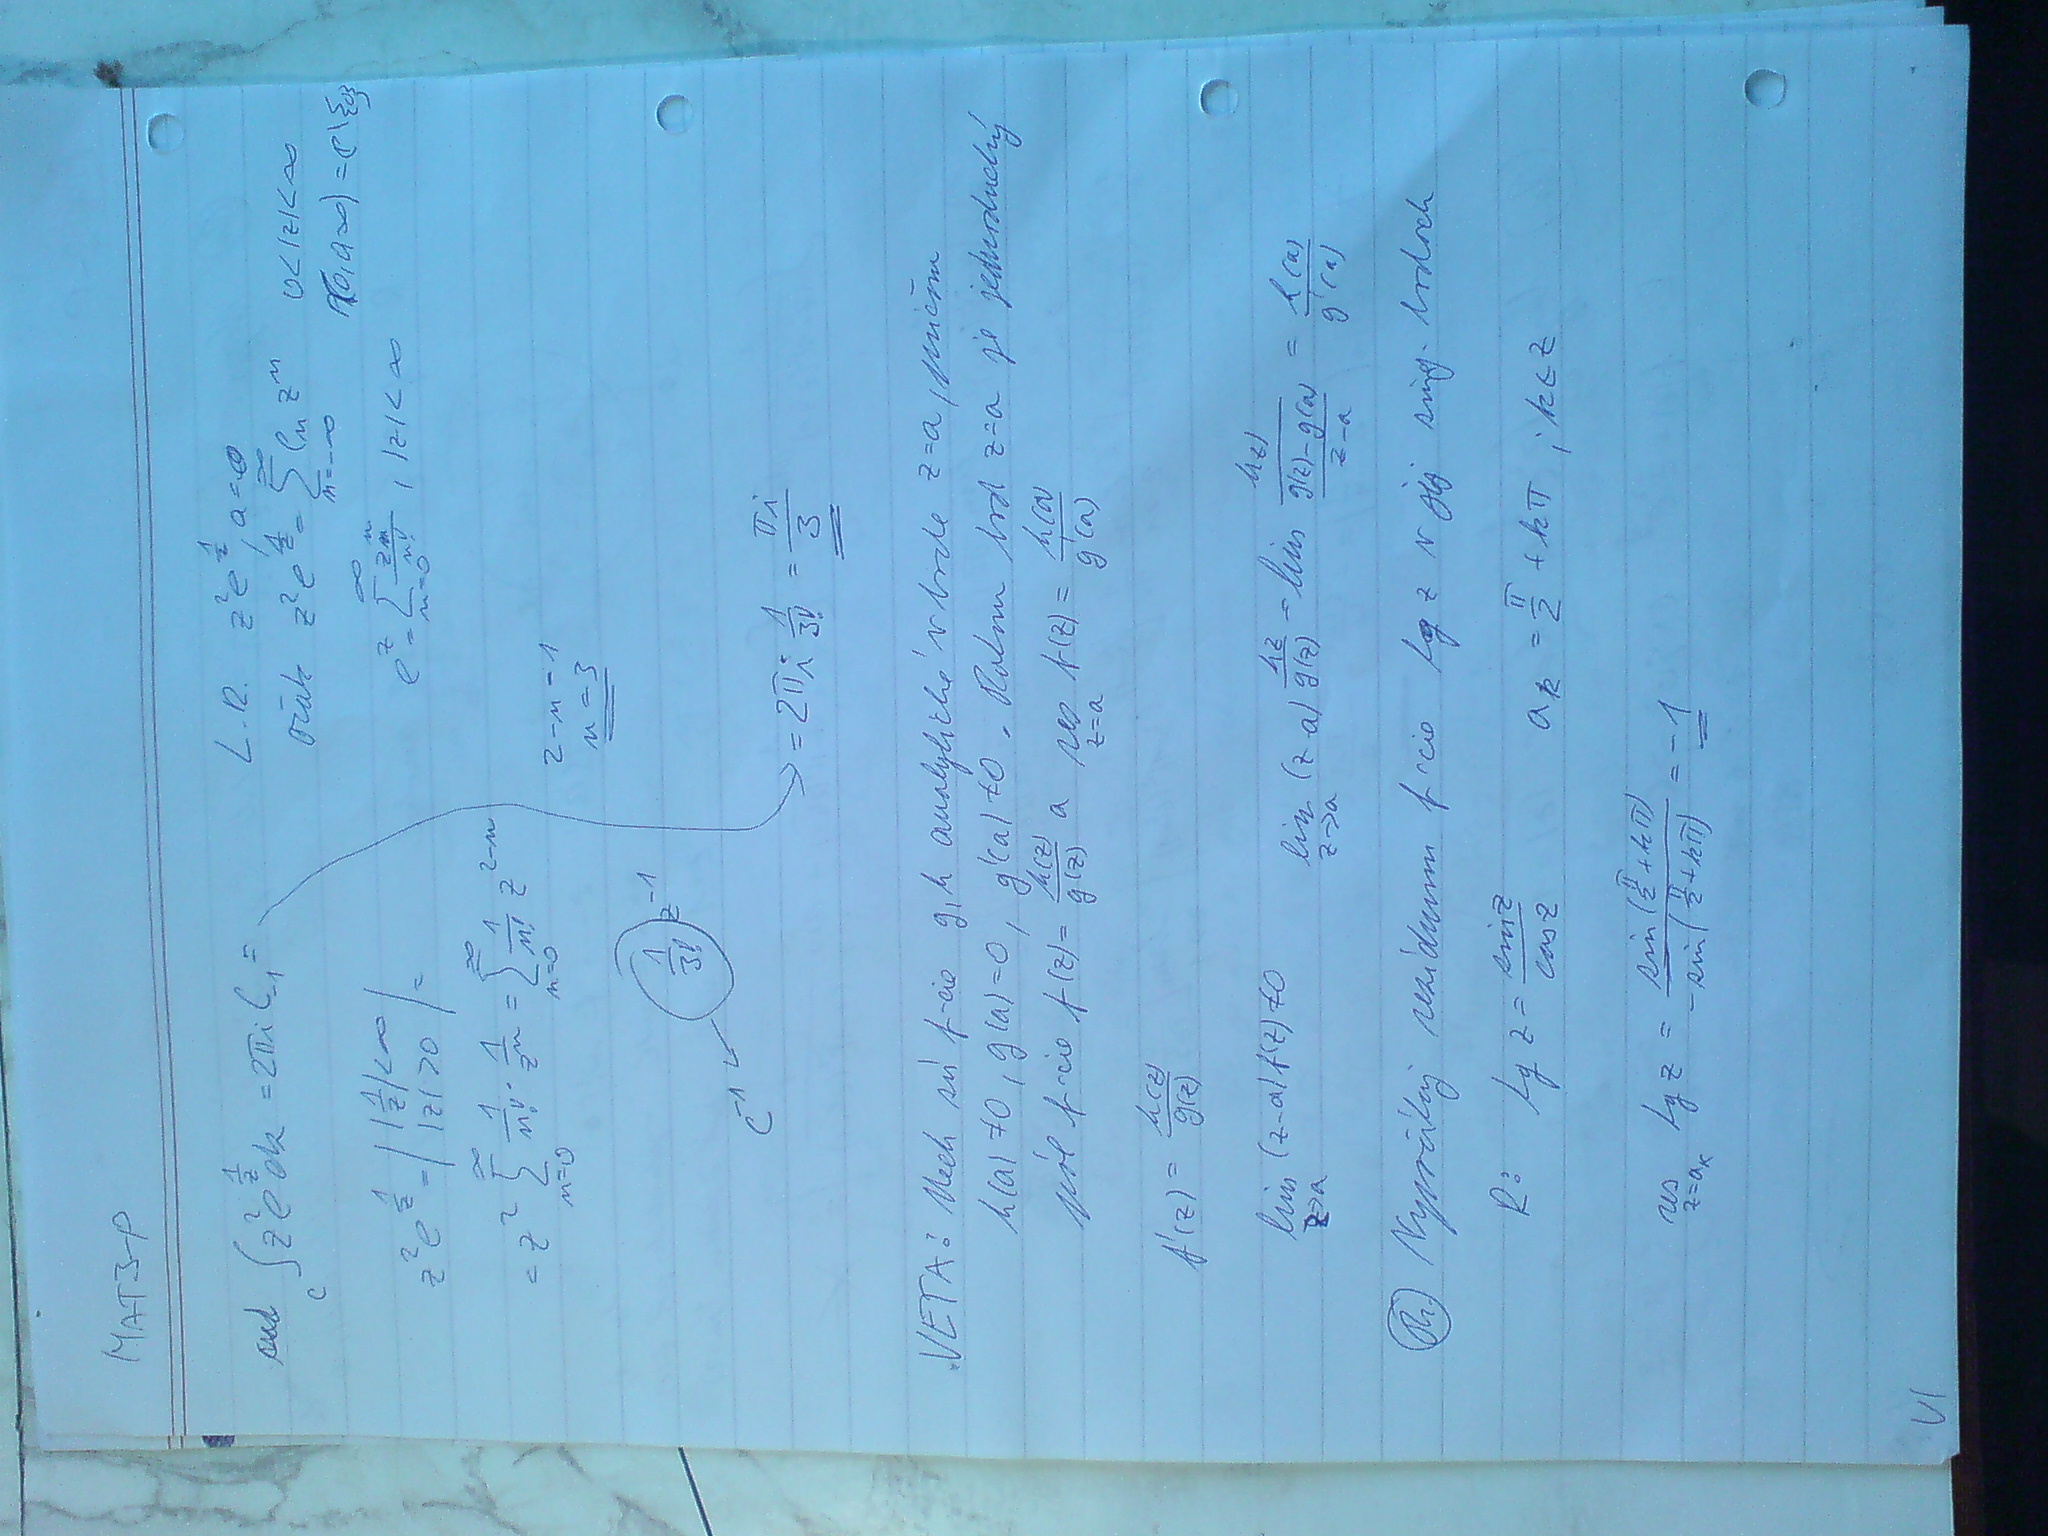 MAT3-P
∫_C z² e^{1/z} dz = 2πi C₋₁ =
L.R. z² e^{1/z}, a=0
z² e^{1/z} = ∑_{n=-∞}^{∞} C_n zⁿ 0<|z|<∞
z² e^{1/z} = | |1/z|<∞ |z|>0 | =
e^z = ∑_{n=0}^{∞} zⁿ/n! , |z|<∞
= z² ∑_{n=0}^{∞} 1/n! · 1/zⁿ = ∑_{n=0}^{∞} 1/n! z^{2-n}
2-n=-1
n=3
1/3! z⁻¹
C₋₁
= 2πi · 1/3! = πi/3
VETA: Nech sú f-cie g, h analytické v bode z=a, pričom
h(a)≠0, g(a)=0, g'(a)≠0. Potom bod z=a je jednoduchý
pól f-cie f(z) = h(z)/g(z) a res_{z=a} f(z) = h(a)/g'(a)
f(z) = h(z)/g(z)
lim_{z→a} (z-a) f(z) ≠0 lim_{z→a} (z-a) hz/g(z) = lim h(z)/((g(z)-g(a))/(z-a)) = h(a)/g'(a)
Pr. Vypočítaj rezíduum f-cie tg z v jej sing. bodoch
R: tg z = sin z/cos z a_k = π/2 + kπ ; k∈Z
res_{z=a_k} tg z = sin(π/2+kπ)/-sin(π/2+kπ) = -1
VI